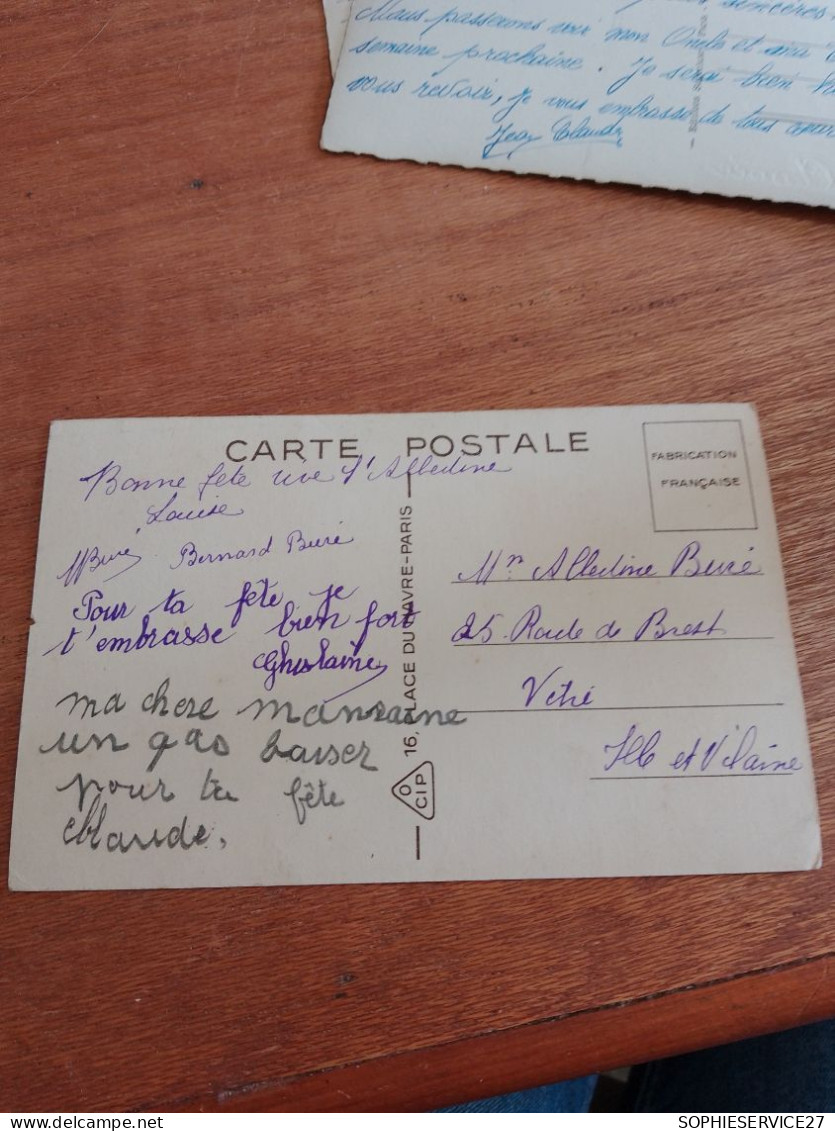 sincères
Nous passerons voir mon Oncle et ma
semaine prochaine. Je serai bien
vous revoir, je vous embrasse de tous
Jean Claude
CARTE POSTALE
FABRICATION
FRANÇAISE
Bonne fête vive
Louise
Bernard Buré
Pour ta fête je
t'embrasse bien fort
Ghislaine
ma chere marraine
un gros baiser
pour ta fête
Claude.
16, PLACE DU HAVRE-PARIS
OCIP
Buré
25 Route de Brest
Vitré
Ille et Vilaine
SOPHIESERVICE27